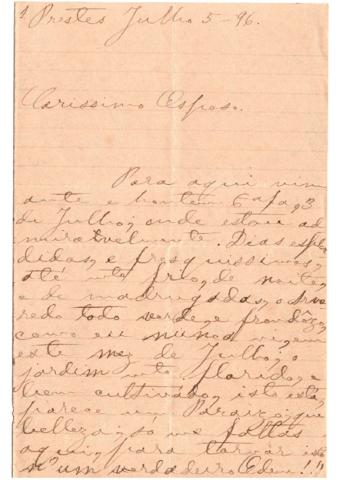 Prestes Julho 5-96.
Carissimo Esposo.
Para aqui vim
ante e hontem 6ª fa, 3
de Julho, onde estou ad
miravelmente. Dias esplen
didos, e fresquissimos,
até mto frio, de noite,
e de madrugada, o arvo
redo todo verde, e frondozo,
como eu nunca vi em
este mez de Julho, o
jardim mto florido, e
bem cultivado, isto está,
parece um Paraizo, que
belleza, só me faltas
aqui, para tornar isto
n'um verdadeiro Edem!!!